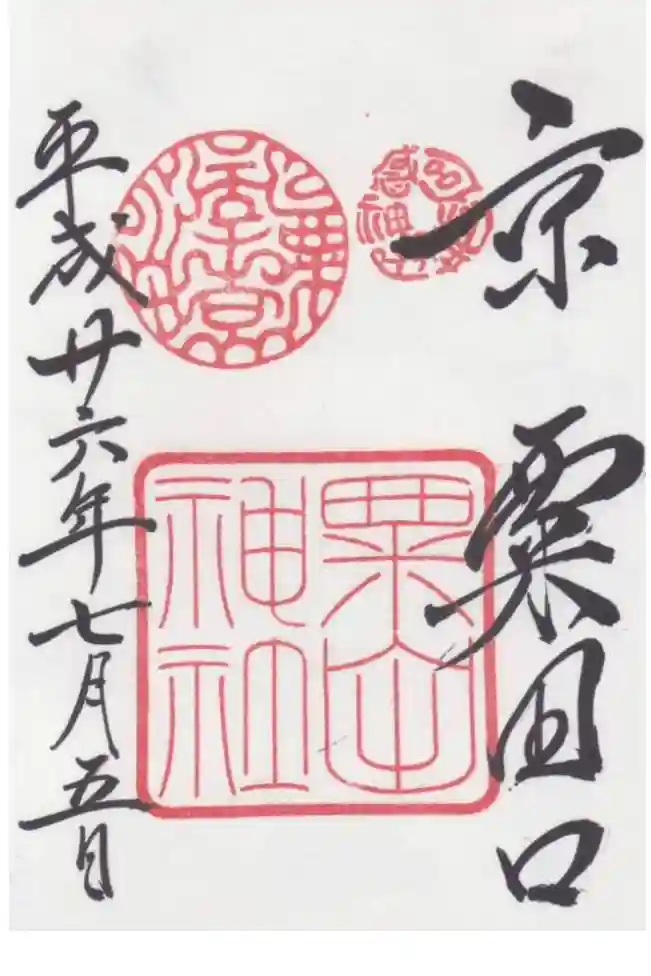 京 粟田口
粟田
神社
平成廿六年七月五日